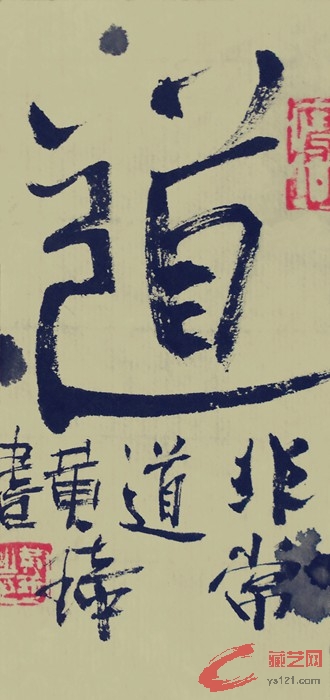 道
非常
道
黄
書
藏艺网
ys121.com